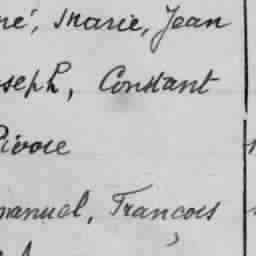 né, Marie, Jean
seph, Constant
manuel, François